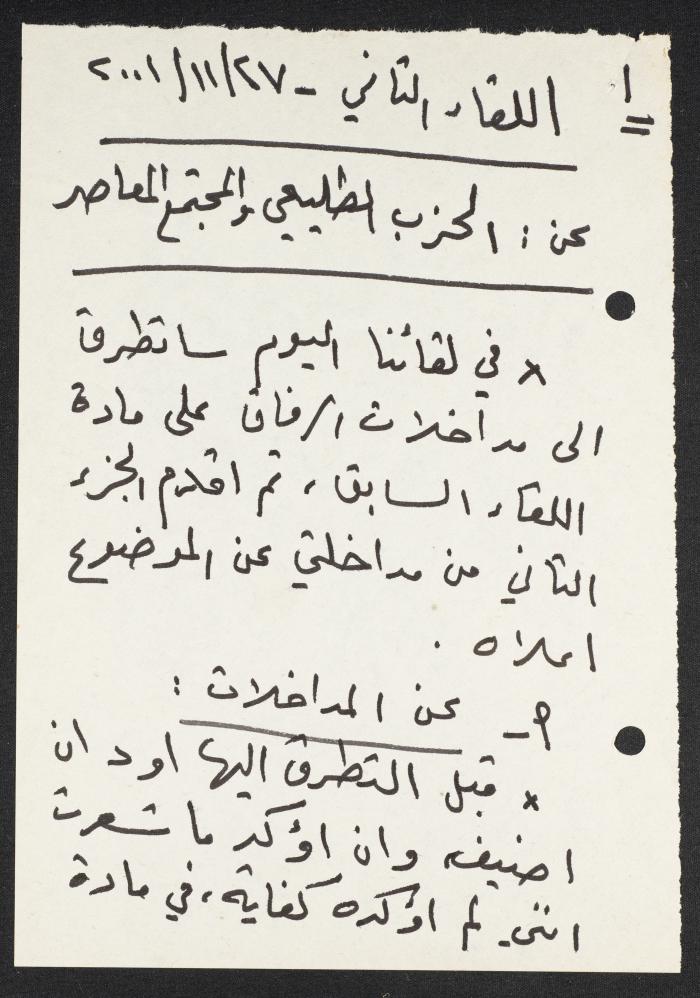 ١
اللقاء الثاني - ٢٧/١١/٢٠٠١
عن : الحزب الطليعي والمجتمع المعاصر
× في لقائنا اليوم ساتطرق
الى مداخلات الرفاق على مادة
اللقاء السابق ، ثم اقدم الجزء
الثاني من مداخلتي عن الموضوع
اعلاه .
أ - عن المداخلات :
× قبل التطرق اليها اود ان
اضيف وان اؤكد ما شعرت
انني لم اؤكده كفاية ، في مادة